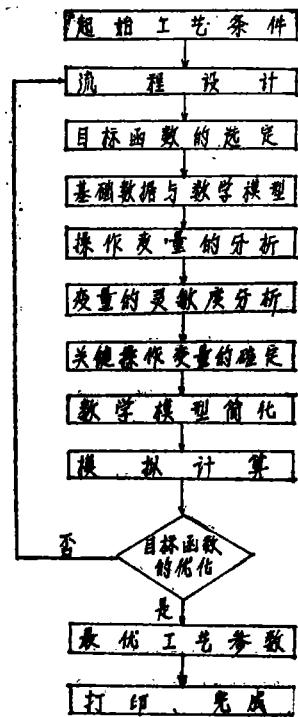 起始工艺条件
流程设计
目标函数的选定
基础数据与数学模型
操作变量的分析
变量的灵敏度分析
关键操作变量的确定
数学模型简化
模拟计算
目标函数
的优化
否
是
最优工艺参数
打印、完成